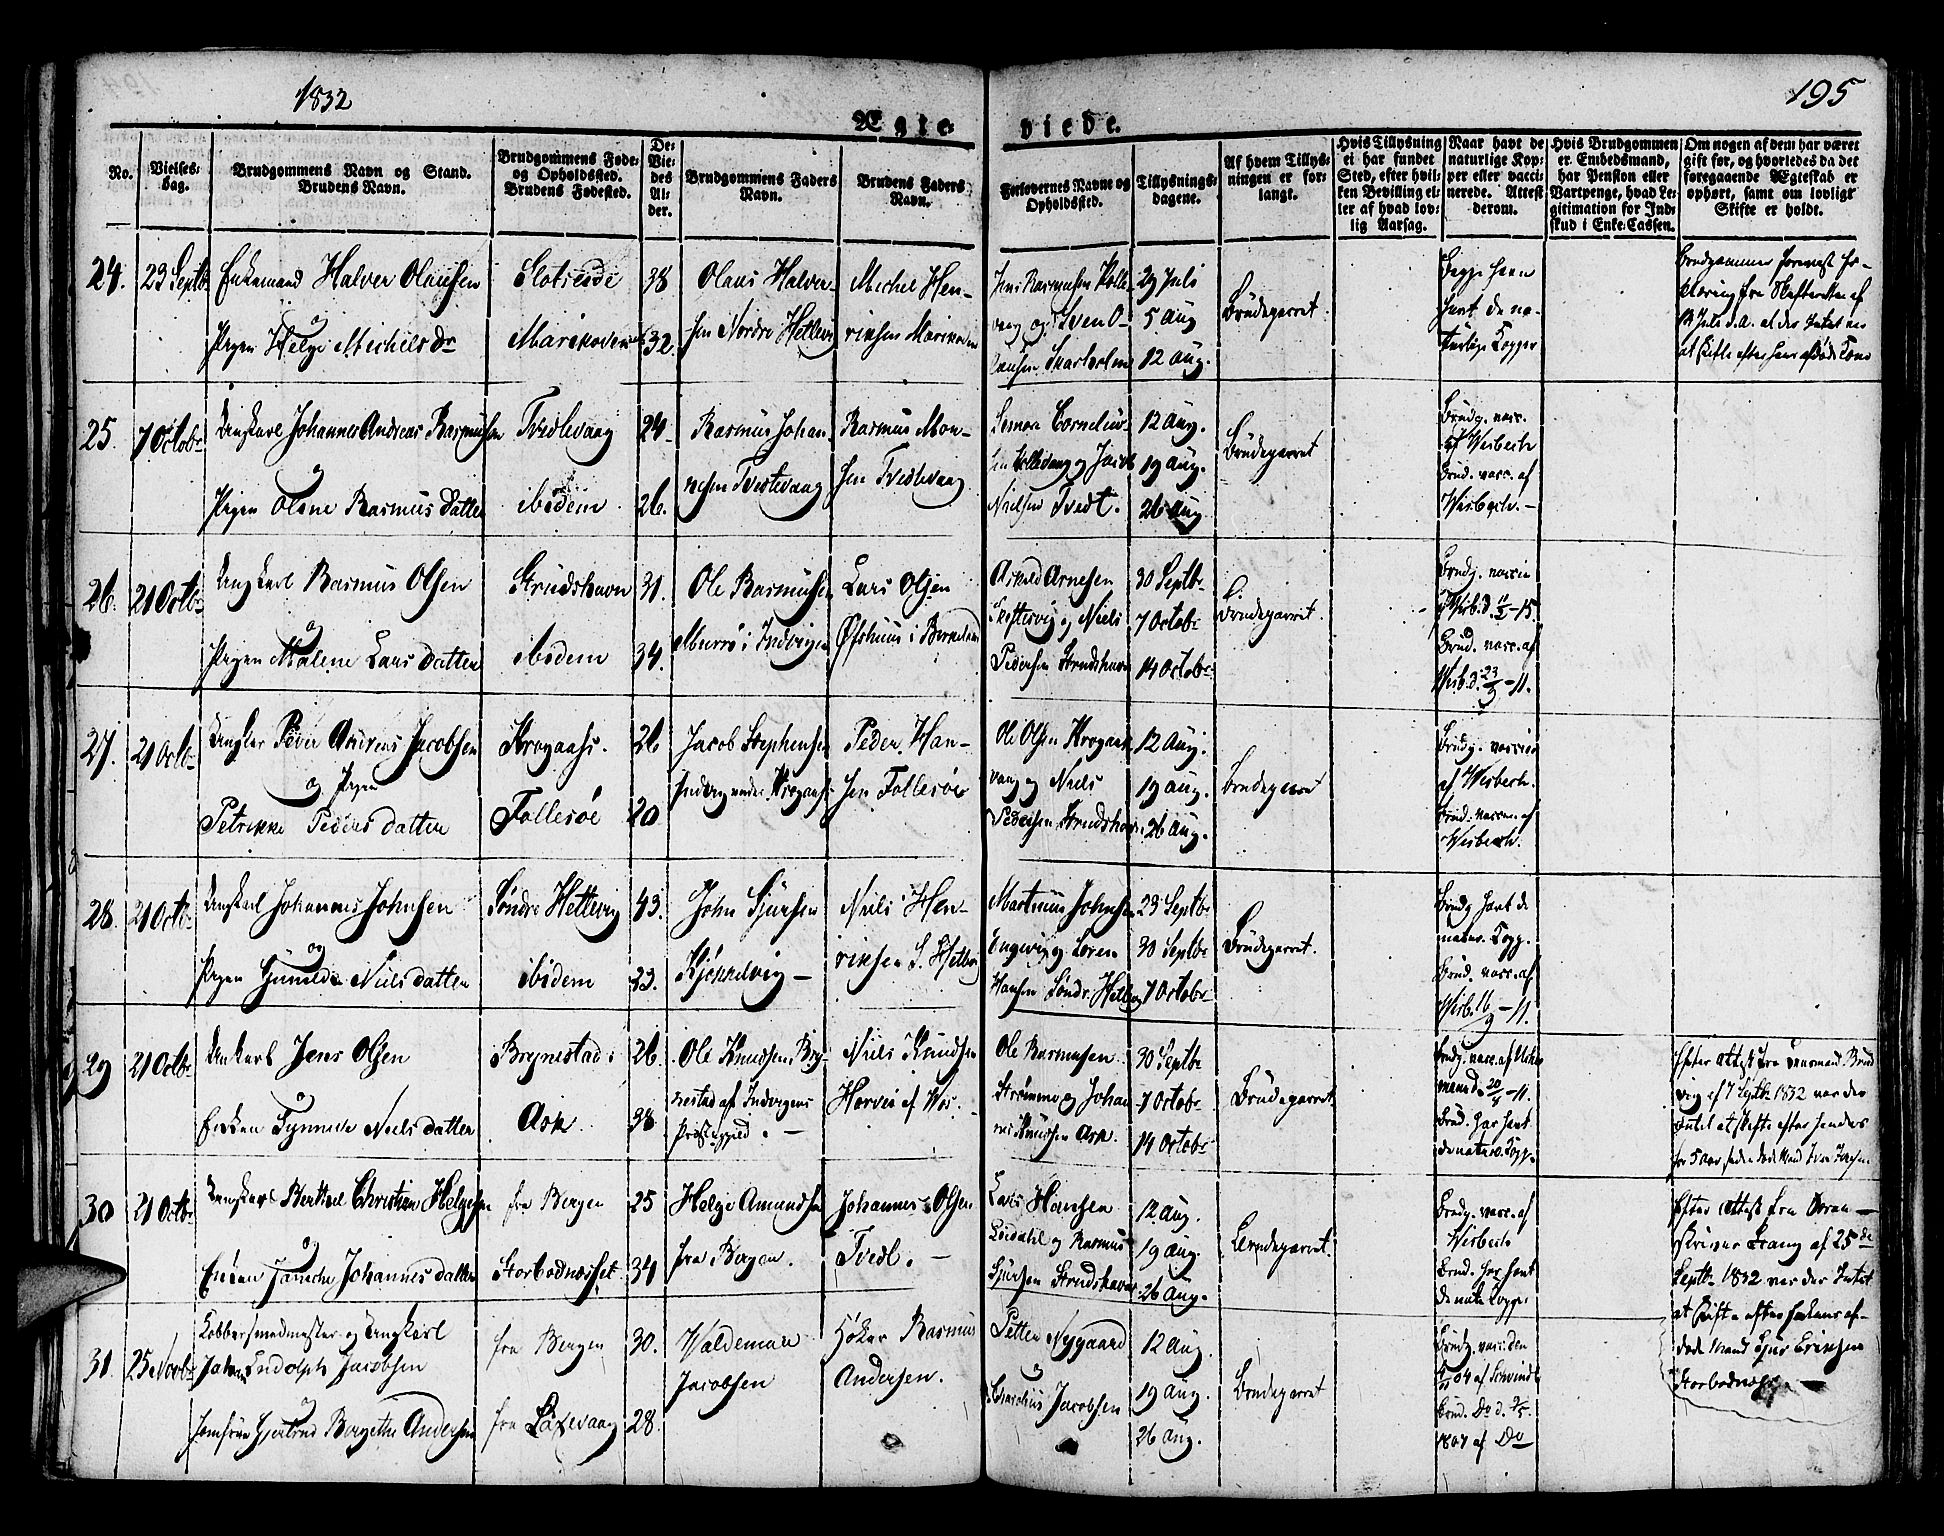 1832
195
Ægteviede.
No.
Vielses-dag.
Brudgommens Navn og Stand.
Brudens Navn.
Brudgommens Føde- og Opholdssted.
Brudens Fødested.
De Viedes Alder.
Brudgommens Faders Navn.
Brudens Faders Navn.
Forlovernes Navne og Opholdssted.
Tillysnings-dagene.
Af hvem Tillysningen er forlangt.
Hvis Tillysning ei har fundet Sted, efter hvilken Bevilling eller af hvad lovlig Aarsag.
Naar havt de naturlige Kopper eller vaccinerede. Attest derom.
Hvis Brudgommen er Embedsmand, har Pension eller Vartpenge, hvad Legitimation for Indskud i Enke-Cassen.
Om nogen af dem har været gift før, og hvorledes da det foregaaende Ægteskab er ophørt, samt om lovligt Skifte er holdt.
24. 23 Septb. Enkemand Halver Olausen
og
Pigen Helge Michelsdr
Slotresde 38
Marikoven 32.
Olaus Halver-
sen Nordre Hettevig
Michel Hen-
riksen Marikoven
Jens Rasmusen
vaag og Sven O-
lausen Skarholm
29 Juli
5 Aug
12 Aug.
Brudeparret
Begge have
havt de na-
turlige Kopper
25. 7 Octobr Ungkarl Johannes Andreas Rasmussen
og
Pigen Olene Rasmus Datter
Tvedtevaag 24
ibidem 26.
Rasmus Johan-
nesen Tvedtevaag
Rasmus Mon-
sen Tvedtevaag
Simon Cornelius-
sen og Jacob
Nielsen Tvedt.
12 Aug.
19 Aug.
26 Aug
Brudeparret
Brudg. vacc.
af Wisbech
Brud. vacc. af
Wisbech.
26. 21 Octb. Ungkarl Rasmus Olsen
og
Pigen Malene Lars Datter
Strudshavn 31.
ibidem 34.
Ole Rasmussen
Murrø i Indvigen
Lars Olsen
Øfshuus i
Askild Arnesen
og Niels
Pedersen Strudshavn
30 Septbr
7 Octobr
14 Octobr
Brudeparret
Brudg. vaccin
Wisb. d. 11/2 – 15.
Brud. vacc. af
Wisb. d. 23/9 – 11.
27. 21 Octb. Peder Andreas Jacobsen
og Pigen
Petrikke Peders Datter
Krogaas. 26
Follesøe 20
Jacob Stephensen
Krogaas
Peder Han-
sen Follesøe
Ole Olsen Krogaas
vaag og Niels
Pedersen Strudshavn
12 Aug.
19 Aug.
26 Aug.
Brudeparret
Brudg. vaccin
af Wisbech.
Brud. vacc. af
Wisbech.
28. 21 Octb. Ungkarl Johannes Johnsen
og
Pigen Gunilde Niels Datter
Søndre Hettevig 43.
ibidem 23.
John Sjursen
Kjøkkelvig
Niels Hen-
riksen S. Hettevig
Martinus Johnsen
og Soren
Hansen Søndr. Hettevig
23 Septbr
30 Septbr
7 Octobr
Brudeparret.
Brudg havt de
natur. Kopp.
Brud. vacc. af
Wisb. 16/9 – 11.
29 21 Octb. Ungkarl Jens Olsen
og
Enken Synneve Niels Datter
Brynestad i 26.
Ask 38
Ole Knudsen Bry-
nestad af Indvigens
Præstegjeld.
Niels Knudsen
Horvei af Vos.
Ole Rasmusen
Strømme og Johan-
nes Knudsen Ask.
30 Septbr
7 Octobr
14 Octobr
Brudeparret.
Brudg. vacc. af
20/4 – 11.
Brud. har havt
de natur. Kopp.
Efter Attest fra
af 7 Septb 1832 var der
Intet at skifte efter hendes
for 5 Aar siden døde Mand
30 21 Octb. Ungkarl Berthel Christian Helgesen
og
Enken Jannche Johannes datter
fra Bergen 25
Storbodnæsset 34
Helge Amundsen
fra Bergen.
Johannes Olsen
Tvedt.
Lars Hansen
og Rasmus
Sjursen Strudshavn
12 Aug.
19 Aug.
26 Aug.
Brudeparret.
Brudg. vacc. af
Wisbech
Brud. har havt
de natu Kopper
Efter Attest fra Soren-
skriver Krang af 25de
Septb. 1832 var der Intet
at skifte efter Enkens af-
døde Mand Sjur Eriksen
Storbodnæs.
31. 25 Novb. Kobbersmedmester og Ungkarl
Johan Ludolph Jacobsen
og
Jomfrue Gjertrud Bergethe Andersen
fra Bergen 30.
fra Laxevaag 28.
Waldemar
Jacobsen
Høker Rasmus
Andersen.
Petter Nygaard
og
Jacobsen
12 Aug.
19 Aug.
26 Aug.
Brudeparret
Brudg. vacc. den
Brud. Do d.
1807 af Do